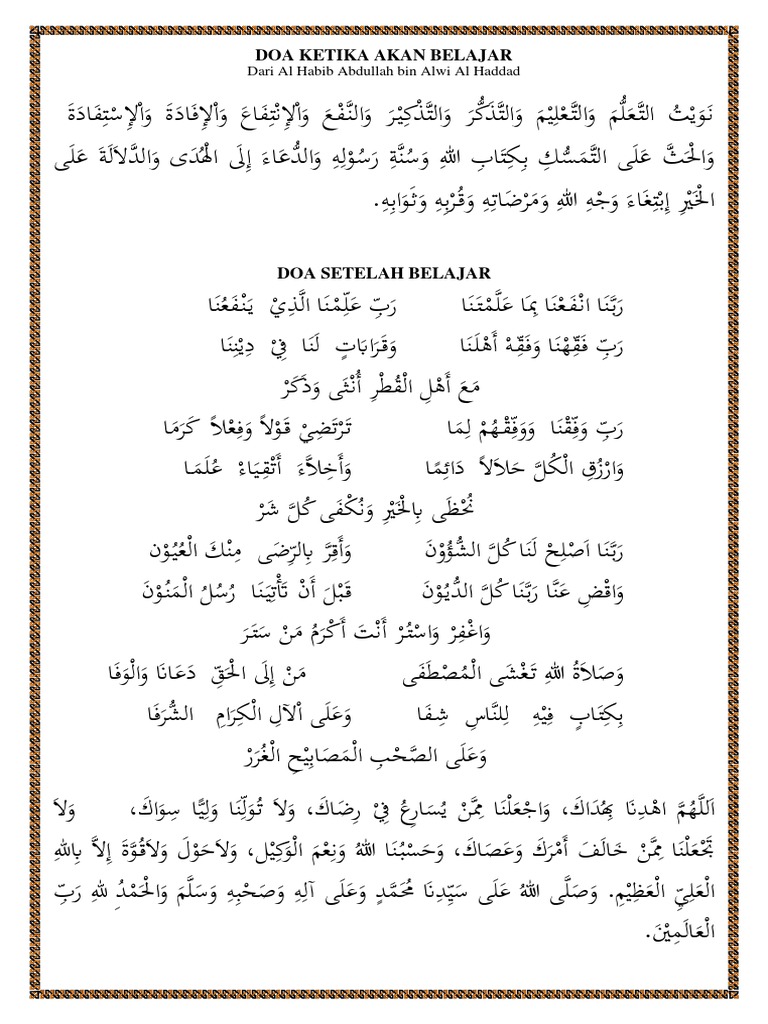 DOA KETIKA AKAN BELAJAR
Dari Al Habib Abdullah bin Alwi Al Haddad
نَوَيْتُ التَّعَلُّمَ وَالتَّعْلِيْمَ وَالتَّذَكُّرَ وَالتَّذْكِيْرَ وَالنَّفْعَ وَاْلإِنْتِفَاعَ وَاْلإِفَادَةَ وَاْلإِسْتِفَادَةَ
وَالْحَثَّ عَلَى التَّمَسُّكِ بِكِتَابِ اللهِ وَسُنَّةِ رَسُوْلِهِ وَالدُّعَاءَ إِلَى الْهُدَى وَالدَّلاَلَةَ عَلَى
الْخَيْرِ إِبْتِغَاءَ وَجْهِ اللهِ وَمَرْضَاتِهِ وَقُرْبِهِ وَثَوَابِهِ.
DOA SETELAH BELAJAR
رَبَّنَا انْفَعْنَا بِمَا عَلَّمْتَنَا رَبِّ عَلِّمْنَا الَّذِيْ يَنْفَعُنَا
رَبِّ فَقِّهْنَا وَفَقِّهْ أَهْلَنَا وَقَرَابَاتٍ لَنَا فِيْ دِيْنِنَا
مَعَ أَهْلِ الْقُطْرِ أُنْثَى وَذَكَرْ
رَبِّ وَفِّقْنَا وَوَفِّقْهُمْ لِمَا تَرْتَضِيْ قَوْلاً وَفِعْلاً كَرَمَا
وَارْزُقِ الْكُلَّ حَلاَلاً دَائِمًا وَأَخِلاَّءَ أَتْقِيَاءْ عُلَمَا
نُحْظَى بِالْخَيْرِ وَنُكْفَى كُلَّ شَرْ
رَبَّنَا اَصْلِحْ لَنَا كُلَّ الشُّؤُوْنَ وَأَقِرَّ بِالرِّضَى مِنْكَ الْعُيُوْن
وَاقْضِ عَنَّا رَبَّنَا كُلَّ الدُّيُوْنَ قَبْلَ أَنْ تَأْتِيَنَا رُسُلُ الْمَنُوْنَ
وَاغْفِرْ وَاسْتُرْ أَنْتَ أَكْرَمُ مَنْ سَتَرَ
وَصَلاَةُ اللهِ تَغْشَى الْمُصْطَفَى مَنْ إِلَى الْحَقِّ دَعَانَا وَالْوَفَا
بِكِتَابٍ فِيْهِ لِلنَّاسِ شِفَا وَعَلَى اْلآلِ الْكِرَامِ الشُّرَفَا
وَعَلَى الصَّحْبِ الْمَصَابِيْحِ الْغُرَرْ
اَللَّهُمَّ اهْدِنَا بِهُدَاكَ، وَاجْعَلْنَا مِمَّنْ يُسَارِعُ فِيْ رِضَاكَ، وَلاَ تُوَلِّنَا وَلِيًّا سِوَاكَ، وَلاَ
تَجْعَلْنَا مِمَّنْ خَالَفَ أَمْرَكَ وَعَصَاكَ، وَحَسْبُنَا اللهُ وَنِعْمَ الْوَكِيْل، وَلاَحَوْلَ وَلاَقُوَّةَ إِلاَّ بِاللهِ
الْعَلِيِّ الْعَظِيْمِ. وَصَلَّى اللهُ عَلَى سَيِّدِنَا مُحَمَّدٍ وَعَلَى آلِهِ وَصَحْبِهِ وَسَلَّمَ وَالْحَمْدُ لِلهِ رَبِّ
الْعَالَمِيْنَ.